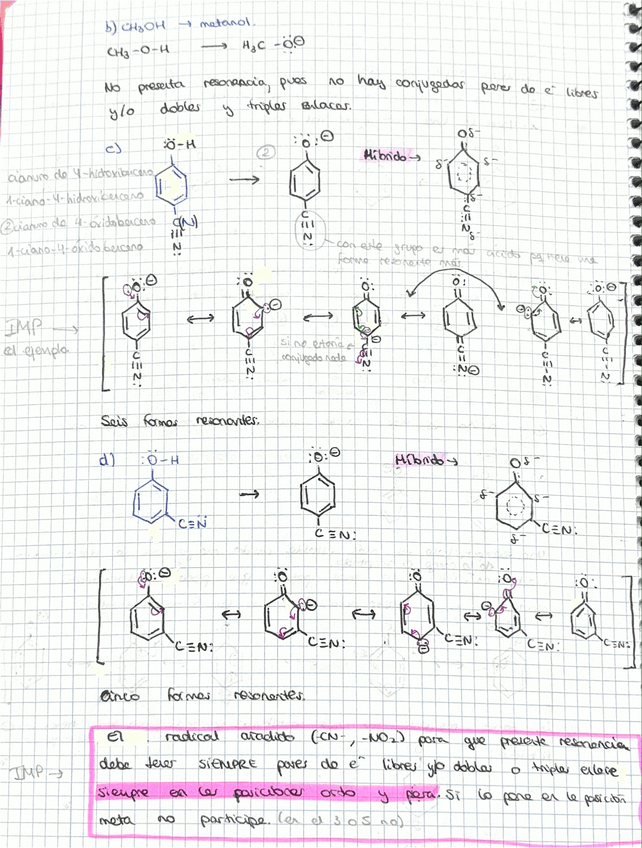 b) CH3OH → metanol.
CH3-O-H → H3C-O⊖
No presenta resonancia, pues no hay conjugados pares de e⁻ libres
y/o dobles y triples enlaces.
c) :Ö-H
② :O:⊖
Híbrido→ Oδ-
cianuro de 4-hidroxibenceno
1-ciano-4-hidroxibenceno
② cianuro de 4-óxidobenceno
1-ciano-4-óxidobenceno
C≡N:
con este grupo es más ácido pq tiene una
forma resonante más
IMP →
el ejemplo
si no estaría
conjugado nada
Seis formas resonantes.
d) :Ö-H
:O:⊖
Híbrido→ Oδ-
C≡N
C≡N:
C≡N:
C≡N: C≡N: C≡N: C≡N: C≡N:
cinco formas resonantes.
El radical añadido (-CN-, -NO2) para que presente resonancia
IMP → debe tener SIEMPRE pares de e⁻ libres y/o dobles o triples enlace
siempre en las posiciones orto y para. Si lo pone en la posición
meta no participa. (en el 3 o 5 no)